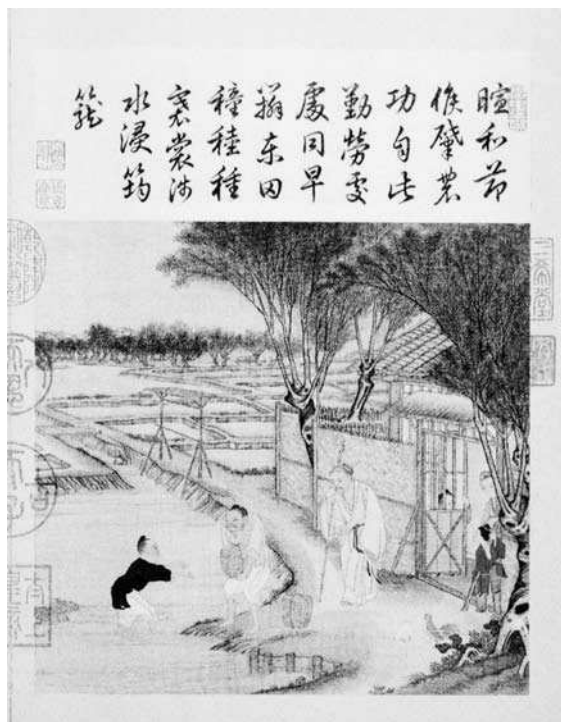 暄和節
候肇農
功自此
勤勞處
處同早
辦東田
穜稑種
褰裳涉
水浸筠
籠
三希堂